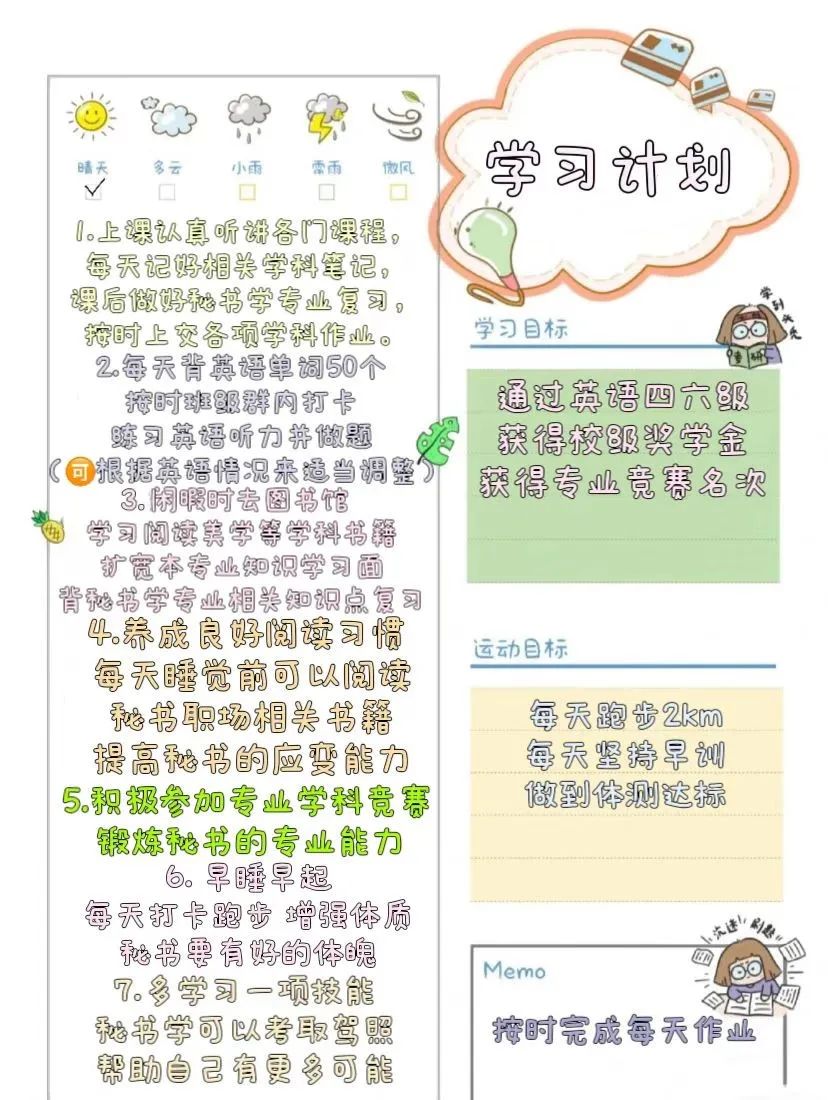 学习计划
晴天 多云 小雨 雷雨 微风
1.上课认真听讲各门课程，
每天记好相关学科笔记，
课后做好秘书学专业复习，
按时上交各项学科作业。
2.每天背英语单词50个
按时班级群内打卡
练习英语听力并做题
（可根据英语情况来适当调整）
3.闲暇时去图书馆
学习阅读美学等学科书籍
扩宽本专业知识学习面
背秘书学专业相关知识点复习
4.养成良好阅读习惯
每天睡觉前可以阅读
秘书职场相关书籍
提高秘书的应变能力
5.积极参加专业学科竞赛
锻炼秘书的专业能力
6. 早睡早起
每天打卡跑步 增强体质
秘书要有好的体魄
7.多学习一项技能
秘书学可以考取驾照
帮助自己有更多可能
学习目标
学到头秃
考研
通过英语四六级
获得校级奖学金
获得专业竞赛名次
运动目标
每天跑步2km
每天坚持早训
做到体测达标
沉迷刷题
Memo
按时完成每天作业